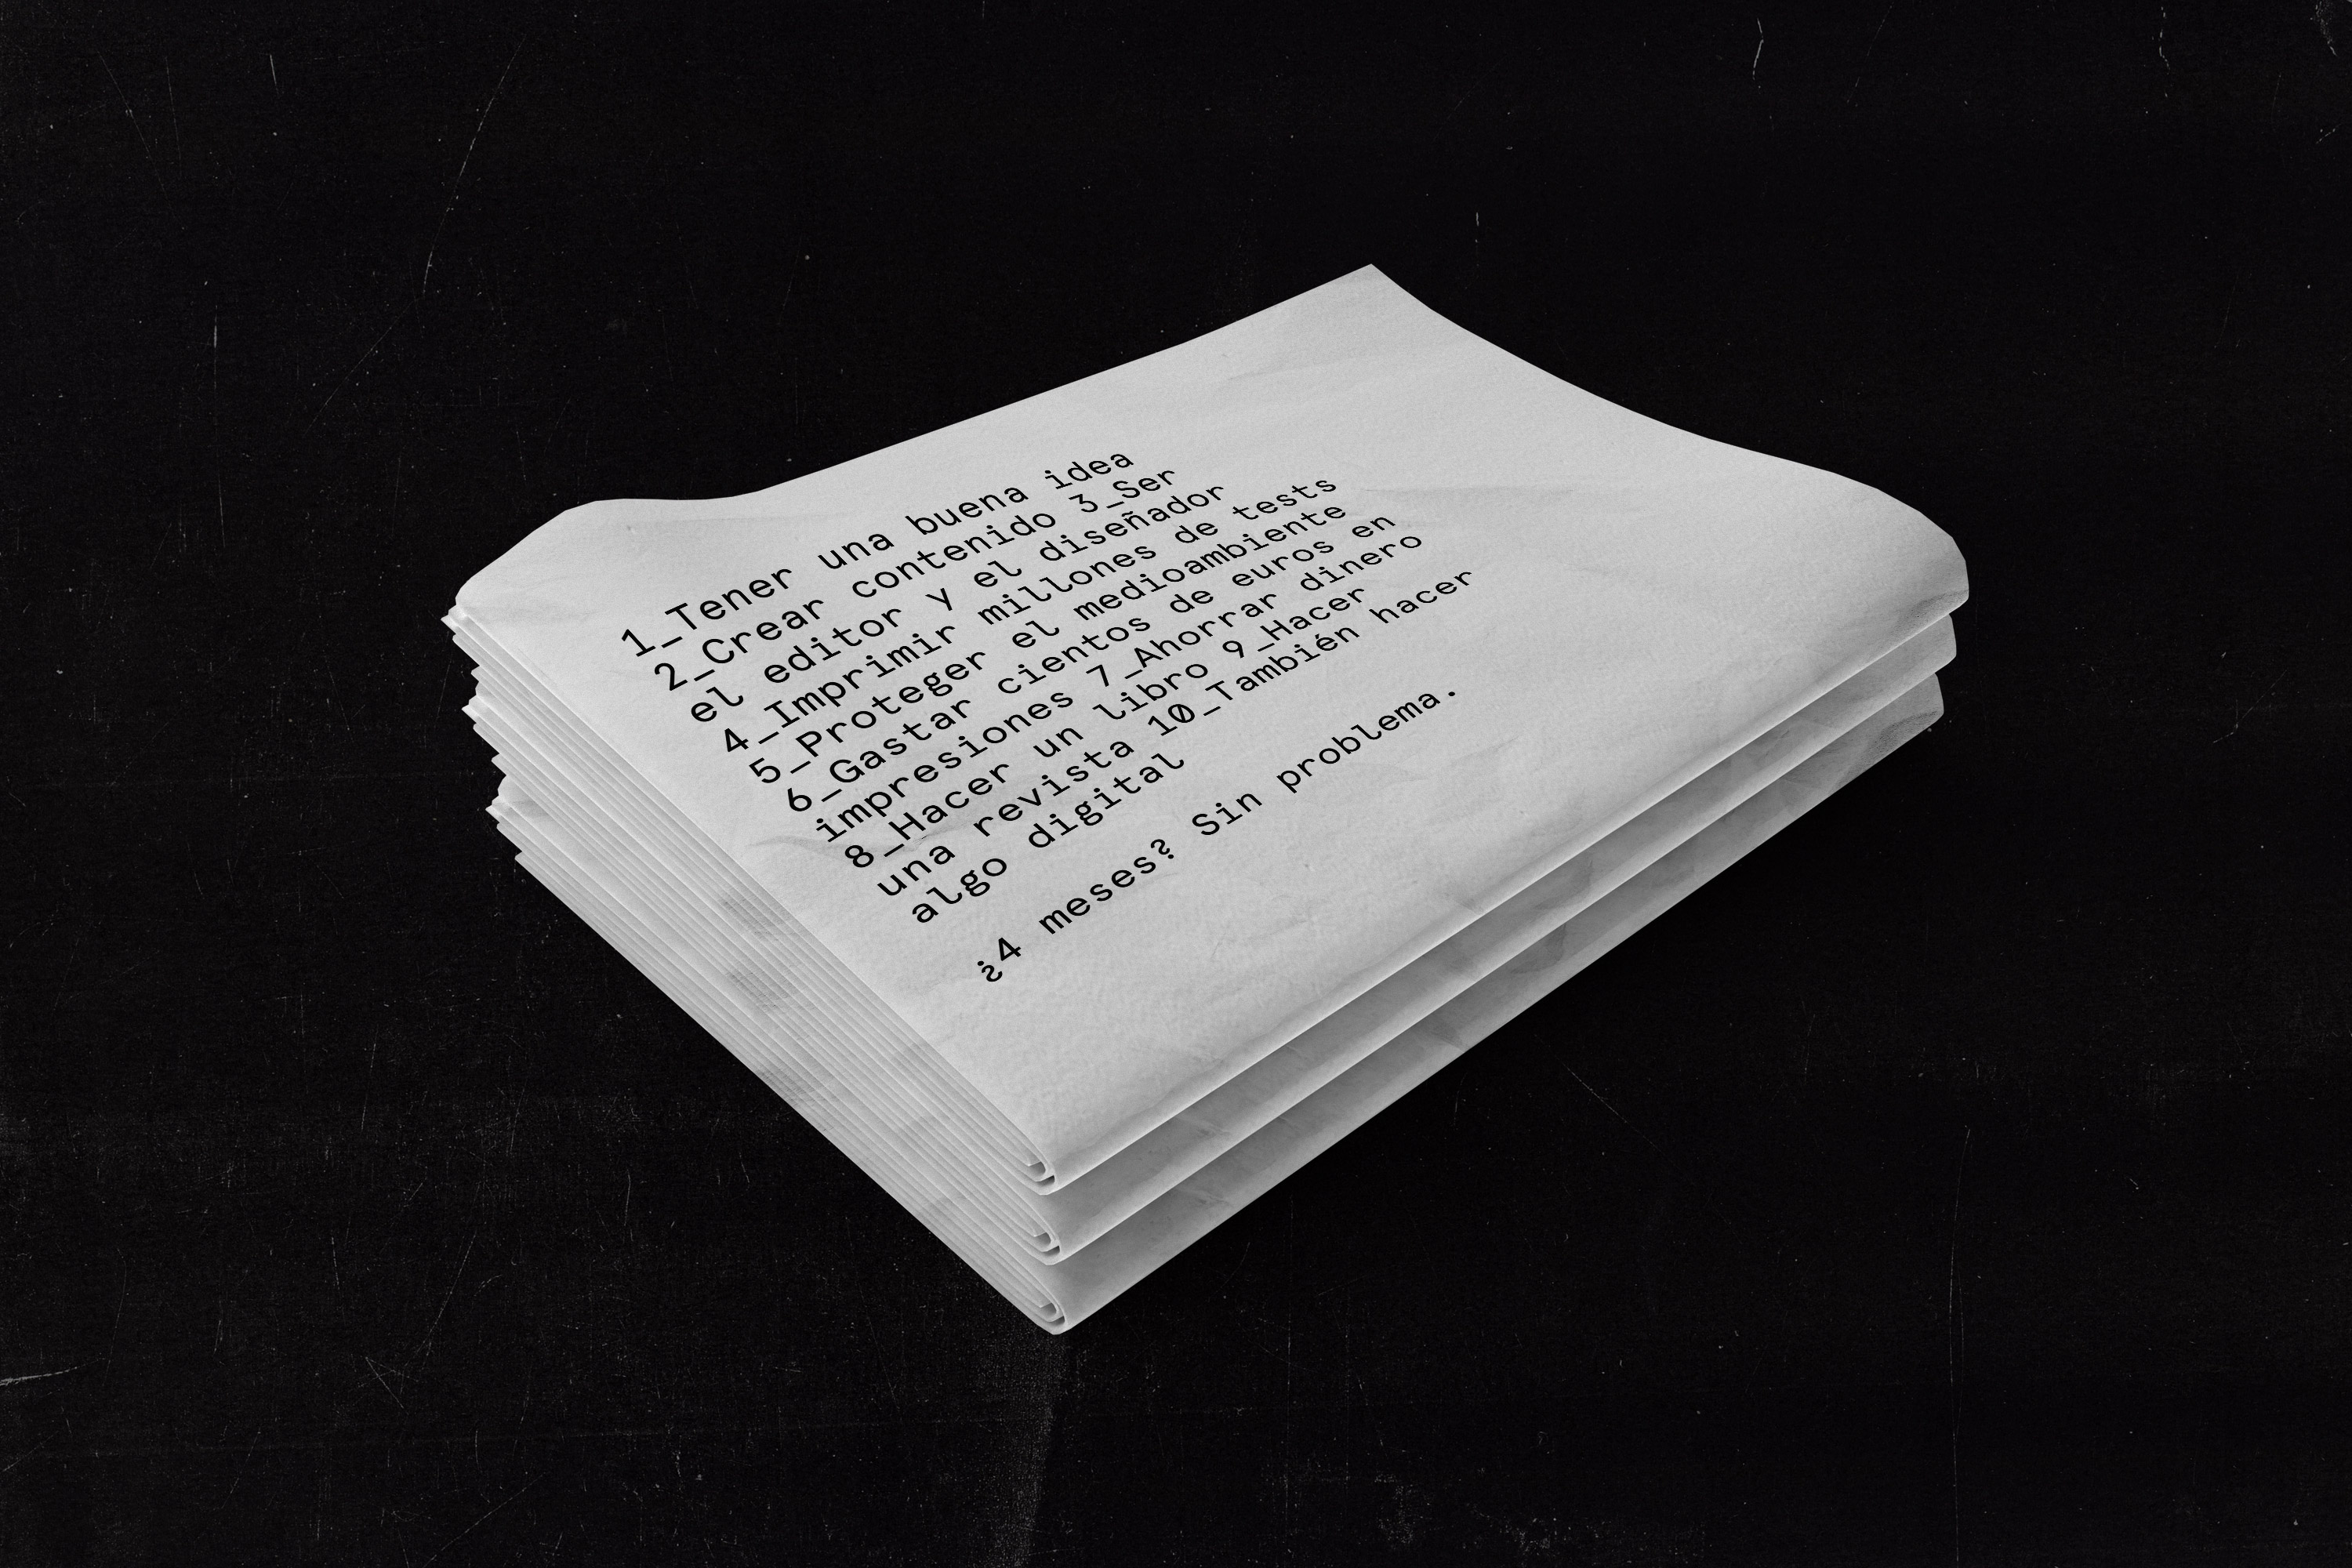 1_Tener una buena idea
2_Crear contenido 3_Ser
el editor y el diseñador
4_Imprimir millones de tests
5_Proteger el medioambiente
6_Gastar cientos de euros en
impresiones 7_Ahorrar dinero
8_Hacer un libro 9_Hacer
una revista 10_También hacer
algo digital
¿4 meses? Sin problema.